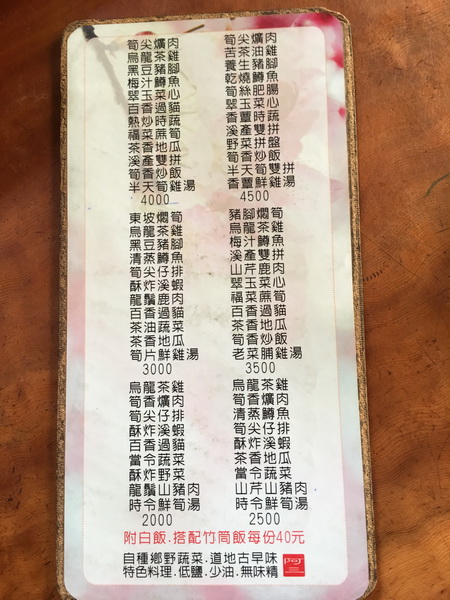 筍尖爌肉
烏龍茶雞
黑豆豬腳
梅汁鱒魚
翠玉菜心
百香過貓
熱炒時蔬
福菜筍
茶香地瓜
溪產雙拼
筍香炒飯
半天筍雞湯
4000
筍尖爌肉
苦茶油雞
養生豬腳
乾燒鱒魚
筍絲肥腸
翠玉菜心
香蕈時蔬
溪產雙拼
野菜拼盤
筍香炒飯
半天筍雙拼
香蕈鮮雞湯
4500
東坡燜筍
烏龍茶雞
黑豆豬腳
清蒸鱒魚
筍尖仔排
酥炸溪蝦
龍鬚鹿肉
百香過貓
茶油蔬菜
茶香地瓜
筍片鮮雞湯
3000
豬腳燜筍
烏龍茶雞
梅汁鱒魚
溪產雙拼
山芹鹿肉
翠玉菜心
福菜筍
百香過貓
茶香地瓜
筍香炒飯
老菜脯雞湯
3500
烏龍茶雞
筍香爌肉
筍尖仔排
酥炸溪蝦
百香過貓
當令蔬菜
酥炸野菜
龍鬚山豬肉
時令鮮筍湯
2000
烏龍茶雞
筍香爌肉
清蒸鱒魚
筍尖仔排
酥炸溪蝦
茶香地瓜
當令蔬菜
山芹山豬肉
時令鮮筍湯
2500
附白飯.搭配竹筒飯每份40元
自種鄉野蔬菜.道地古早味
特色料理.低鹽.少油.無味精